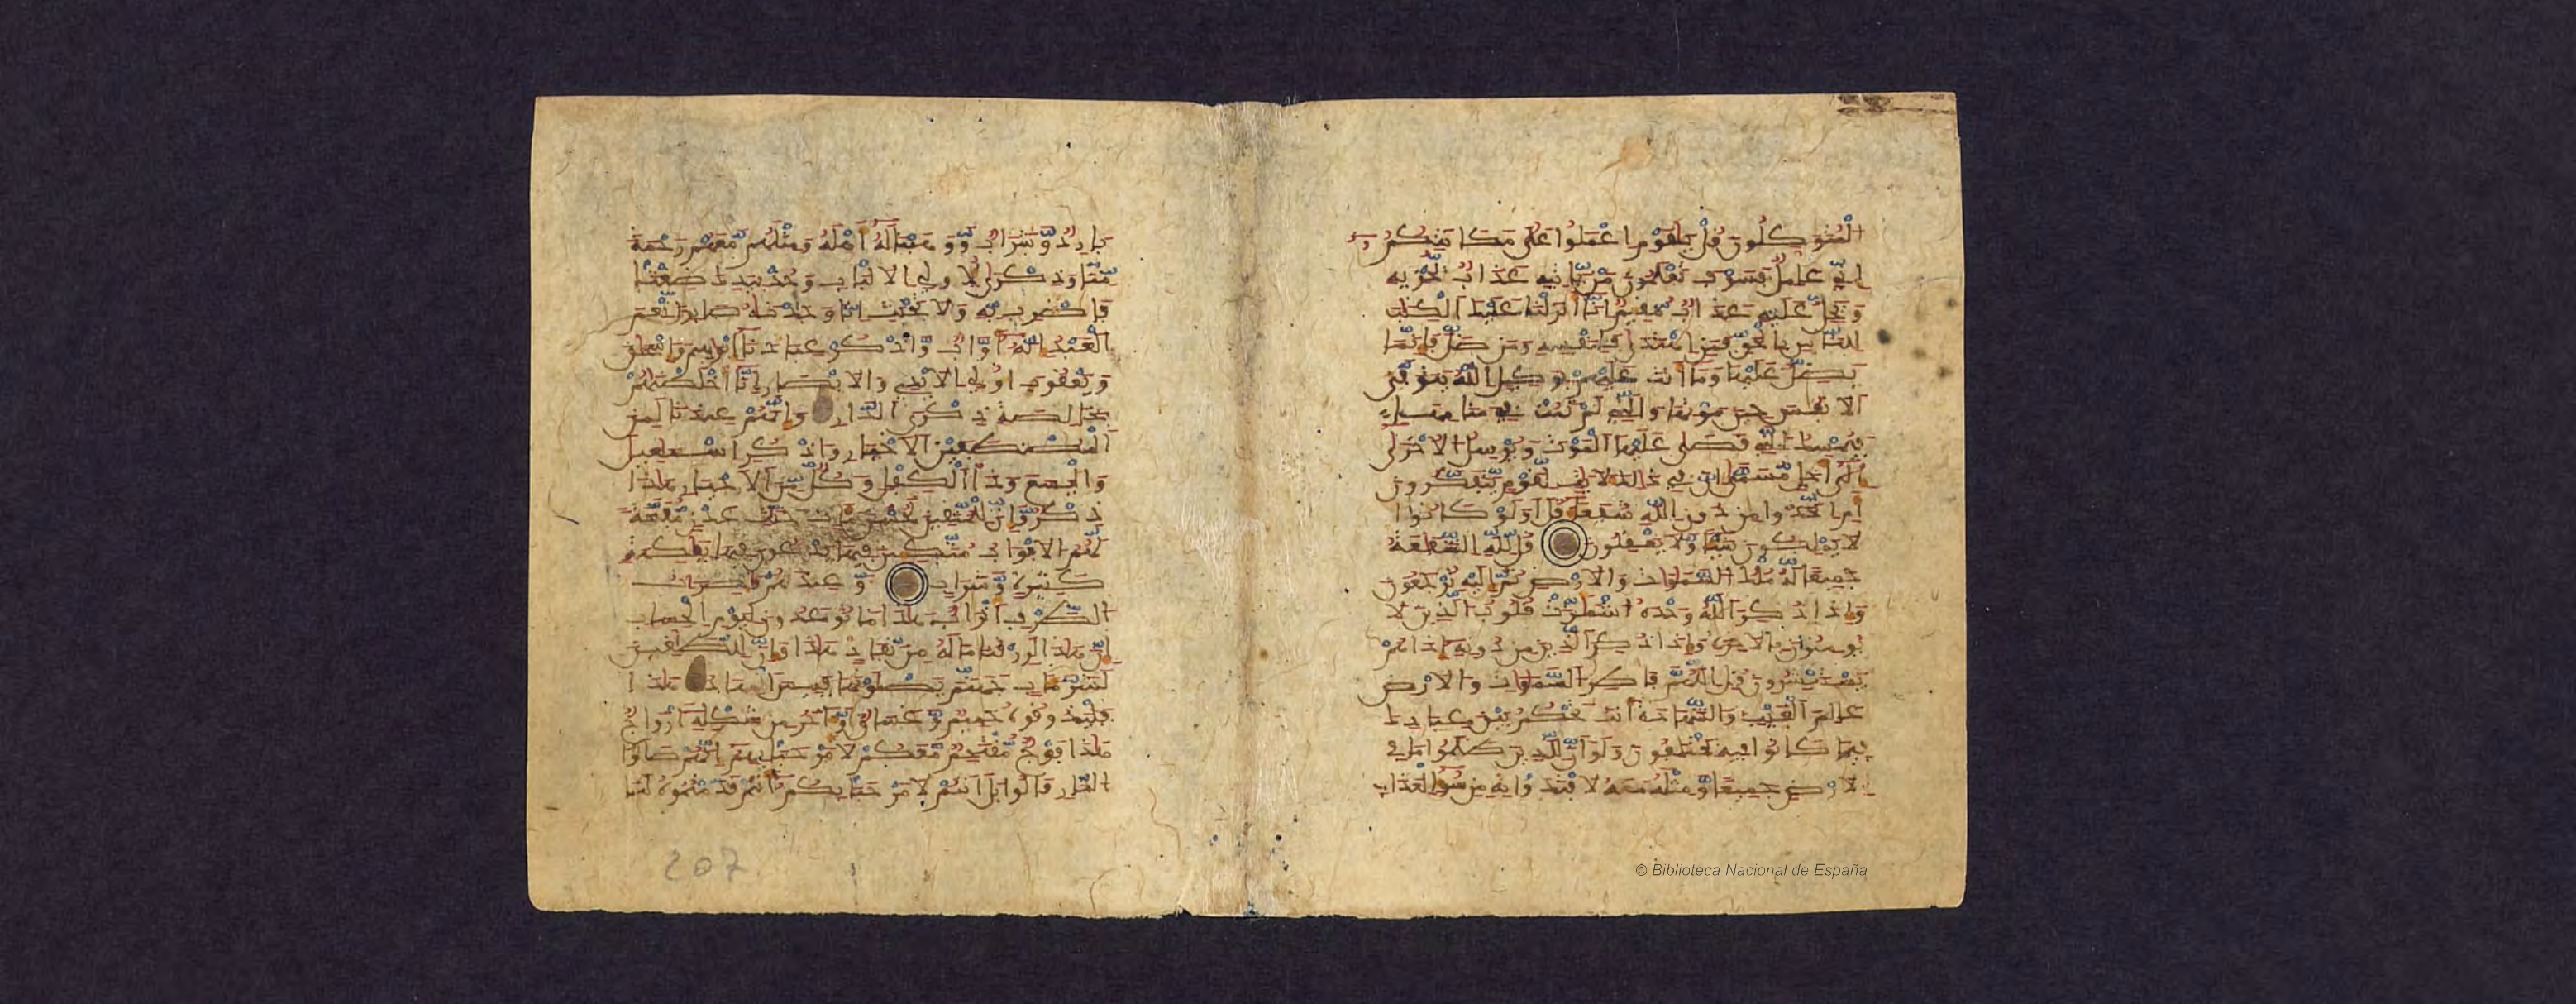 المتوكلون قل يقوم اعملوا على مكانتكم
اني عامل فسوف تعلمون من ياتيه عذاب يخزيه
ويحل عليه عذاب مقيم انا انزلنا عليك الكتب
للناس بالحق فمن اهتدى فلنفسه ومن ضل فانما
يضل عليها وما انت عليهم بوكيل الله يتوفى
الانفس حين موتها والتي لم تمت في منامها
فيمسك التي قضى عليها الموت ويرسل الاخرى
الى اجل مسمى ان في ذلك لايت لقوم يتفكرون
ام اتخذوا من دون الله شفعاء قل اولو كانوا
لا يملكون شيا ولا يعقلون قل لله الشفعة
جميعا له ملك السموت والارض ثم اليه ترجعون
واذا ذكر الله وحده اشمازت قلوب الذين لا
يومنون بالاخرة واذا ذكر الذين من دونه اذا هم
يستبشرون قل اللهم فاطر السموت والارض
علم الغيب والشهدة انت تحكم بين عبادك
فيما كانوا فيه يختلفون ولو ان للذين ظلموا ما في
الارض جميعا ومثله معه لافتدوا به من سوء العذاب
بارد وشراب ووهبنا له اهله ومثلهم معهم رحمة
منا وذكرى لاولي الالباب وخذ بيدك ضغثا
فاضرب به ولا تحنث انا وجدنه صابرا نعم
العبد انه اواب واذكر عبدنا ابرهيم واسحق
ويعقوب اولي الايدي والابصار انا اخلصنهم
بخالصة ذكرى الدار وانهم عندنا لمن
المصطفين الاخيار واذكر اسمعيل
واليسع وذا الكفل وكل من الاخيار هذا
ذكر وان للمتقين لحسن ماب جنت عدن مفتحة
لهم الابواب متكين فيها يدعون فيها بفكهة
كثيرة وشراب وعندهم قصرت
الطرف اتراب هذا ما توعدون ليوم الحساب
ان هذا لرزقنا ما له من نفاد هذا وان للطغين
لشر ماب جهنم يصلونها فبيس المهاد هذا
فليذوقوه حميم وغساق واخر من شكله ازواج
هذا فوج مقتحم معكم لا مرحبا بهم انهم صالوا
النار قالوا بل انتم لا مرحبا بكم انتم قدمتموه لنا
207
© Biblioteca Nacional de España